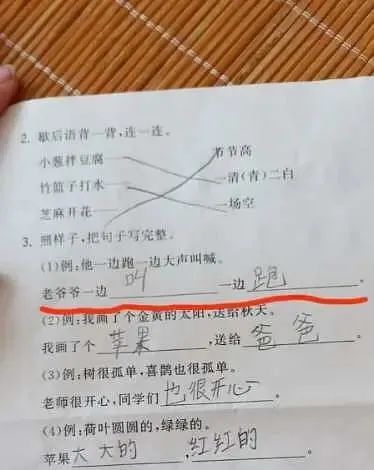 2. 歇后语背一背,连一连。
小葱拌豆腐 节节高
竹篮子打水 一清(青)二白
芝麻开花 一场空
3. 照样子,把句子写完整。
(1)例:他一边跑一边大声叫喊。
老爷爷一边 叫 一边 跑 。
(2)例:我画了个金黄的太阳,送给秋天。
我画了个 苹果 ,送给 爸爸 。
(3)例:树很孤单,喜鹊也很孤单。
老师很开心,同学们 也很开心 。
(4)例:荷叶圆圆的,绿绿的。
苹果 大大的 , 红红的 。